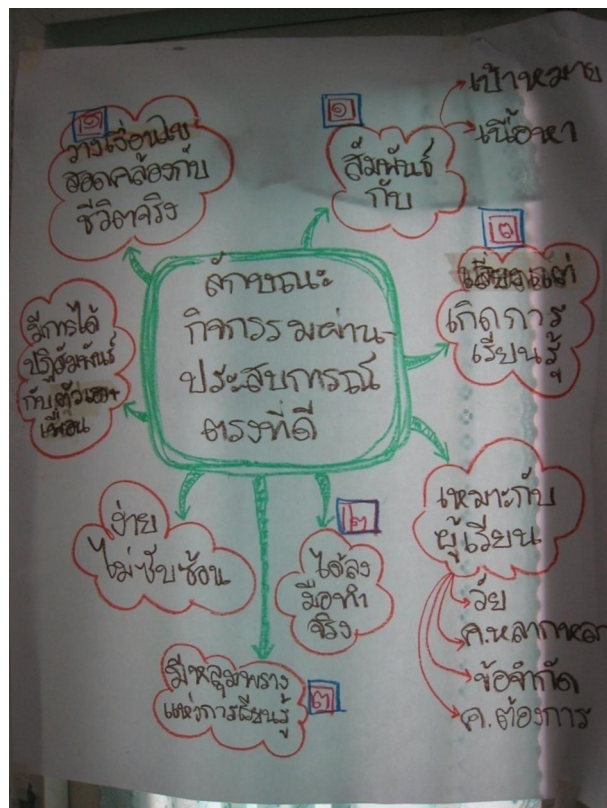 ลักษณะ
กิจกรรมผ่าน
ประสบการณ์
ตรงที่ดี
๑
สัมพันธ์
กับ
เป้าหมาย
เนื้อหา
๓
เกิดการ
เรียนรู้
เหมาะกับ
ผู้เรียน
วัย
ค.หลากหลาย
ข้อจำกัด
ค.ต้องการ
๒
ได้ลง
มือทำ
จริง
๓
มีหลุมพราง
แห่งการเรียนรู้
ง่าย
ไม่ซับซ้อน
มีการได้
ปฏิสัมพันธ์
กับตัวเอง+
เพื่อน
วางเงื่อนไข
สอดคล้องกับ
ชีวิตจริง